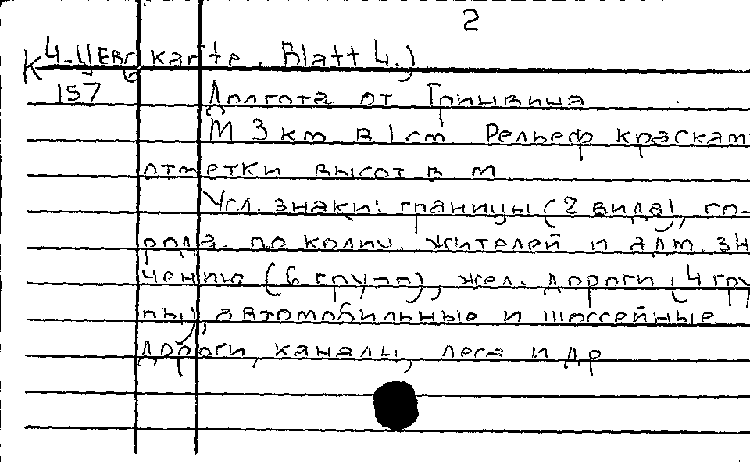 2
К 4-II Евр karte. Blatt 4.)
157 Долгота от Гринвича
М 3 км в 1 см Рельеф краскам
отметки высот в м
Усл. знаки: границы (2 вида), го-
рода по колич. жителей и адм. зн
чению (6 групп), жел. дороги (4 гру
пы), автомобильные и шоссейные
дороги, каналы, леса и др